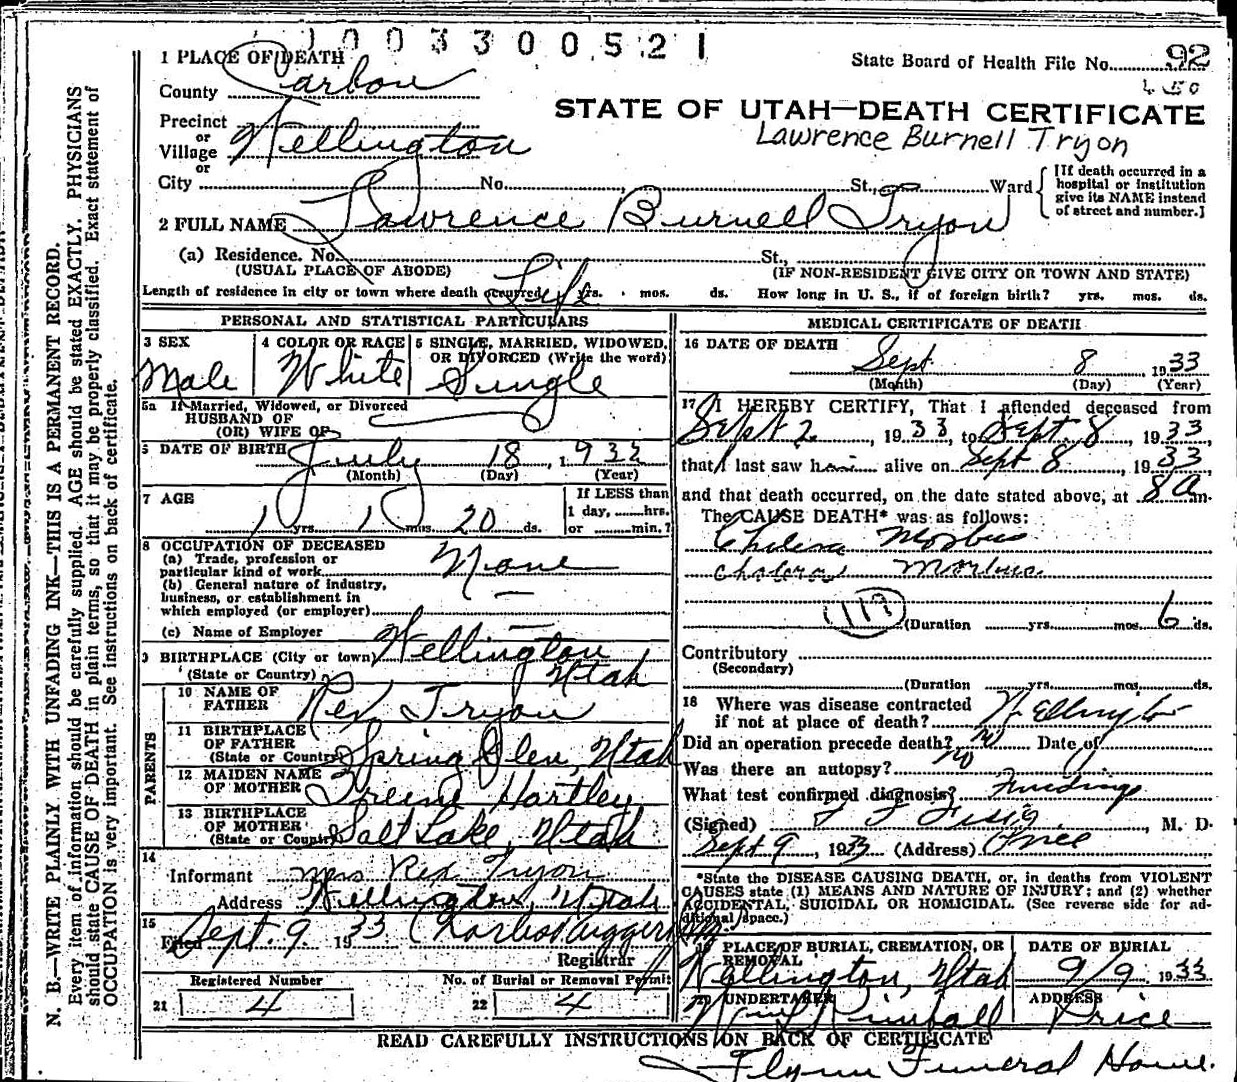 1003300521
1 PLACE OF DEATH
State Board of Health File No. 92
County Carbon
450
STATE OF UTAH—DEATH CERTIFICATE
Precinct
or
Village Wellington
Lawrence Burnell Tryon
or
City No. St., Ward
[If death occurred in a
hospital or institution
give its NAME instead
of street and number.]
2 FULL NAME Lawrence Burnell Tryon
(a) Residence. No. St.,
(USUAL PLACE OF ABODE) (IF NON-RESIDENT GIVE CITY OR TOWN AND STATE)
Length of residence in city or town where death occurred Life yrs. mos. ds. How long in U. S., if of foreign birth? yrs. mos. ds.
PERSONAL AND STATISTICAL PARTICULARS
3 SEX
Male
4 COLOR OR RACE
White
5 SINGLE, MARRIED, WIDOWED,
OR DIVORCED (Write the word)
Single
5a If Married, Widowed, or Divorced
HUSBAND OF
(OR) WIFE OF
6 DATE OF BIRTH July 18, 1932
(Month) (Day) (Year)
7 AGE
1 yrs. 1 mos. 20 ds.
If LESS than
1 day, hrs.
or min.?
8 OCCUPATION OF DECEASED
(a) Trade, profession or
particular kind of work None
(b) General nature of industry,
business, or establishment in
which employed (or employer)
(c) Name of Employer
9 BIRTHPLACE (City or town) Wellington
(State or Country) Utah
PARENTS
10 NAME OF
FATHER Rex Tryon
11 BIRTHPLACE
OF FATHER
(State or Country) Spring Glen, Utah
12 MAIDEN NAME
OF MOTHER Irene Hartley
13 BIRTHPLACE
OF MOTHER
(State or Country) Salt Lake, Utah
14
Informant Mrs Rex Tryon
Address Wellington, Utah
15
Filed Sept. 9 1933
Registrar
Registered Number
21 4
No. of Burial or Removal Permit
22 4
MEDICAL CERTIFICATE OF DEATH
16 DATE OF DEATH
Sept 8, 1933
(Month) (Day) (Year)
17 I HEREBY CERTIFY, That I attended deceased from
Sept 2, 1933, to Sept. 8, 1933,
that I last saw him alive on Sept 8, 1933,
and that death occurred, on the date stated above, at 8 a m.
The CAUSE DEATH* was as follows:
Cholera Morbus
cholera morbus
(119)
(Duration yrs. mos. 6 ds.
Contributory
(Secondary)
(Duration yrs. mos. ds.
18 Where was disease contracted
if not at place of death? Wellington
Did an operation precede death? no Date of
Was there an autopsy? no
What test confirmed diagnosis? Findings
(Signed) , M. D.
Sept 9, 1933 (Address) Price
*State the DISEASE CAUSING DEATH, or, in deaths from VIOLENT
CAUSES state (1) MEANS AND NATURE OF INJURY; and (2) whether
ACCIDENTAL, SUICIDAL OR HOMICIDAL. (See reverse side for ad-
ditional space.)
19 PLACE OF BURIAL, CREMATION, OR
REMOVAL
Wellington, Utah
DATE OF BURIAL
9/9 1933
20 UNDERTAKER
Kimball
ADDRESS
Price
READ CAREFULLY INSTRUCTIONS ON BACK OF CERTIFICATE
Flynn Funeral Home.
N. B.—WRITE PLAINLY WITH UNFADING INK—THIS IS A PERMANENT RECORD.
Every item of information should be carefully supplied. AGE should be stated EXACTLY. PHYSICIANS
should state CAUSE OF DEATH in plain terms, so that it may be properly classified. Exact statement of
OCCUPATION is very important. See instructions on back of certificate.